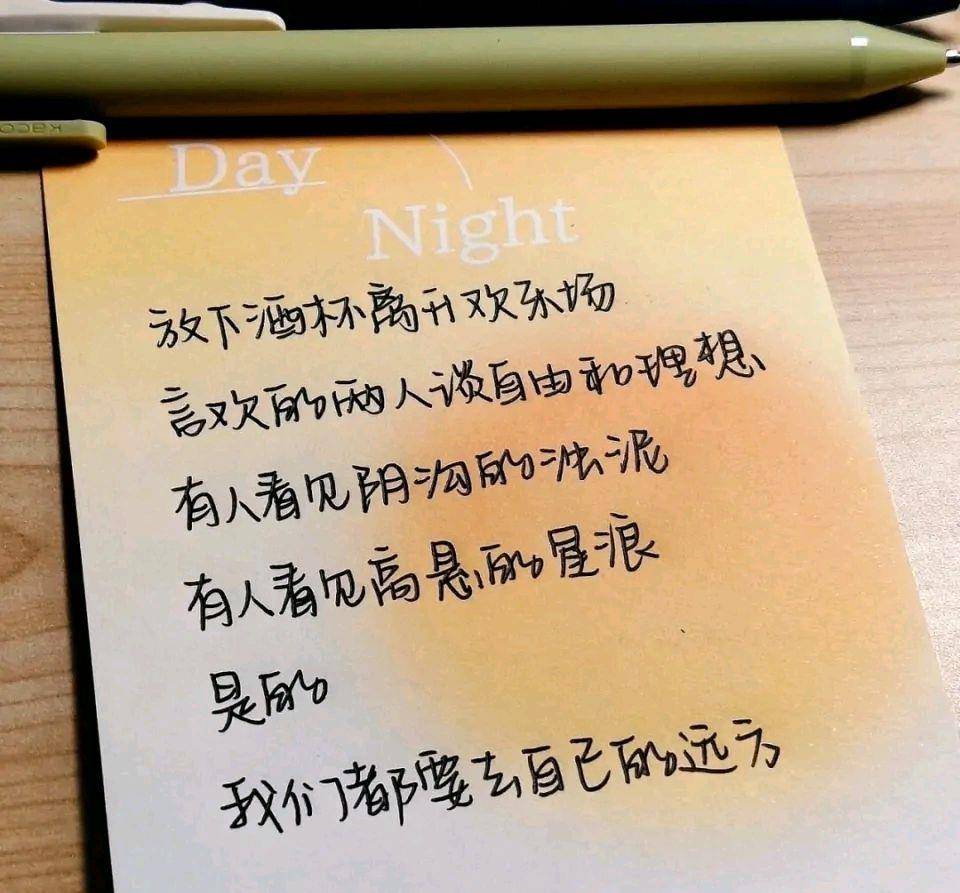 kaco
Day
Night
放下酒杯离开欢乐场
言欢的两人谈自由和理想
有人看见阴沟的浊泥
有人看见高悬的星浪
是的
我们都要去自己的远方